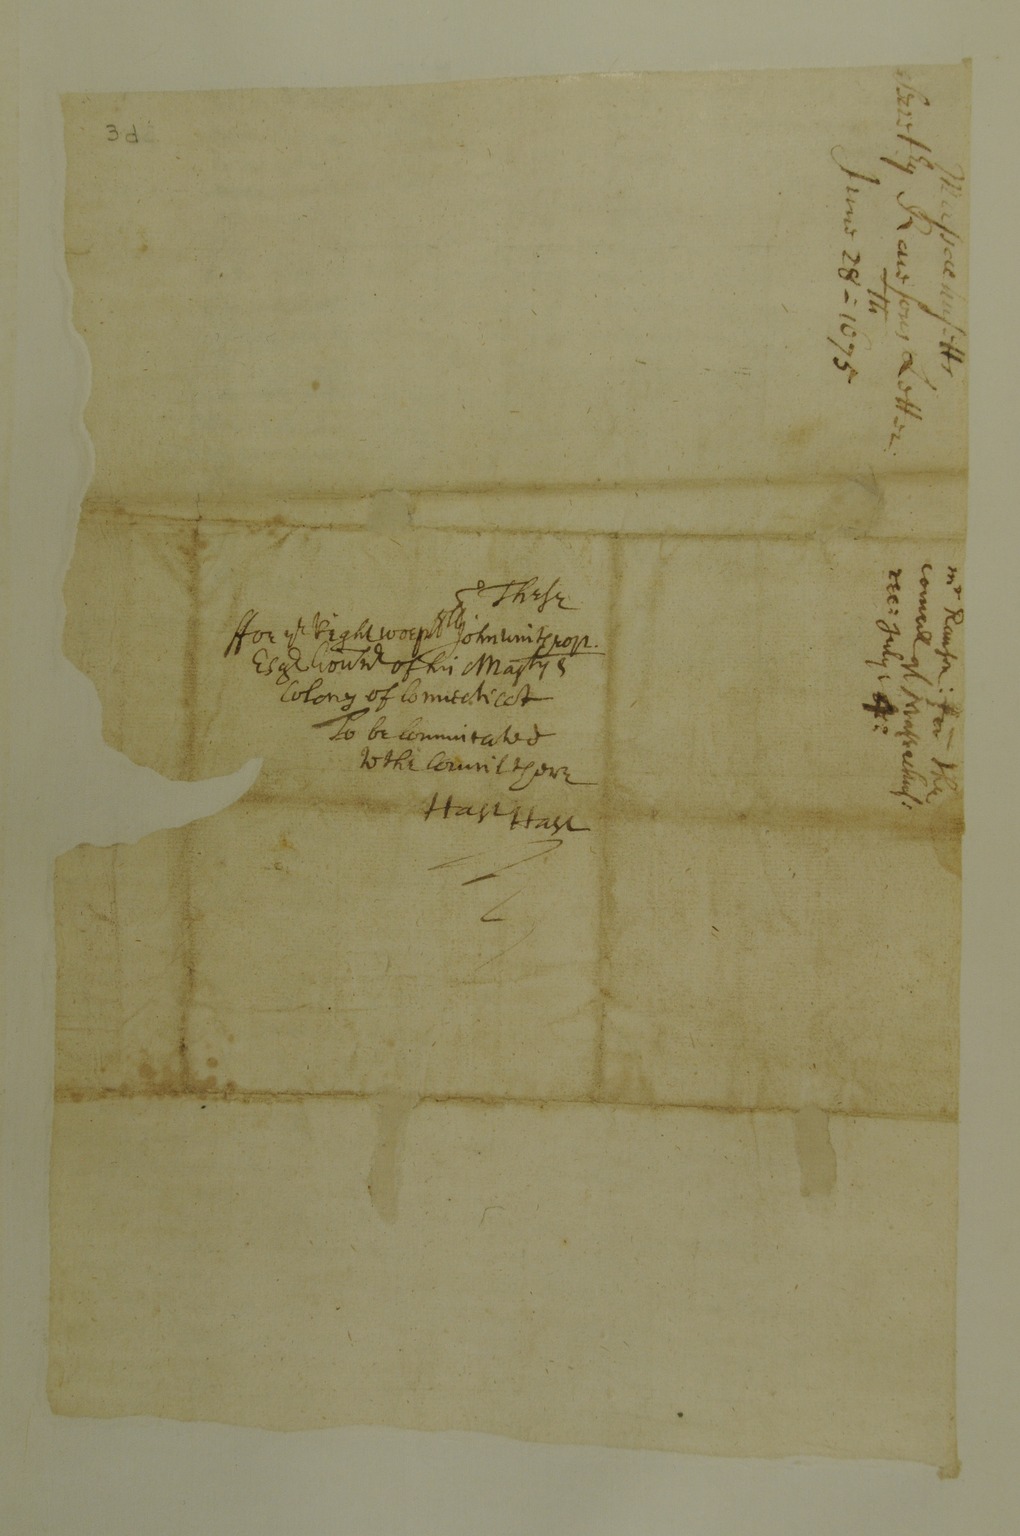 3d
Massachusitts
Secrty Rawsons Letter.
June 28th = 1675
mr Rawson: for the
councel of Massachus:
rec: July: 4:
These
ffor ye Right worpfll John Winthrop
Esqr Gournr of his Majtys
Colony of Connecticot
To be Comunicated
to the Councill there
Hast Hast